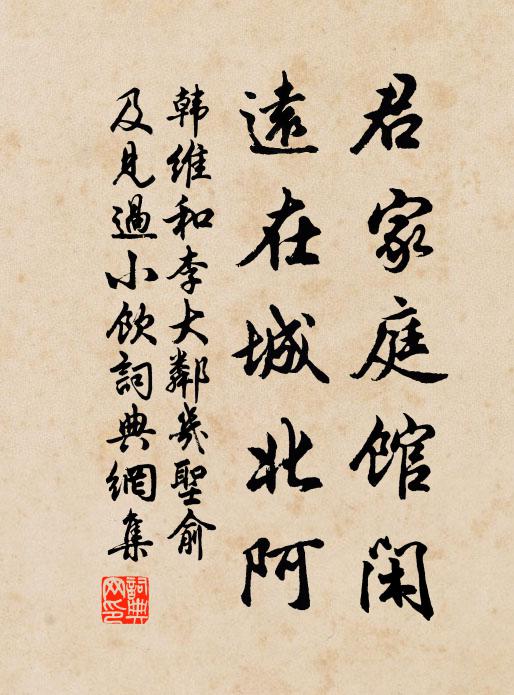 君家庭馆闲
遠在城北阿
韩维和李大鄰幾聖俞
及見過小飲詞典網集
詞典
网印